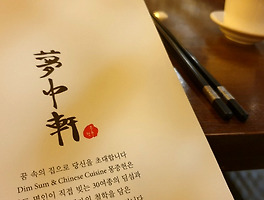 夢中軒
꿈 속의 집으로 당신을 초대합니다
Dim Sum & Chinese Cuisine 몽중헌은
명인이 직접 빚는 30여종의 딤섬과
철학을 담은